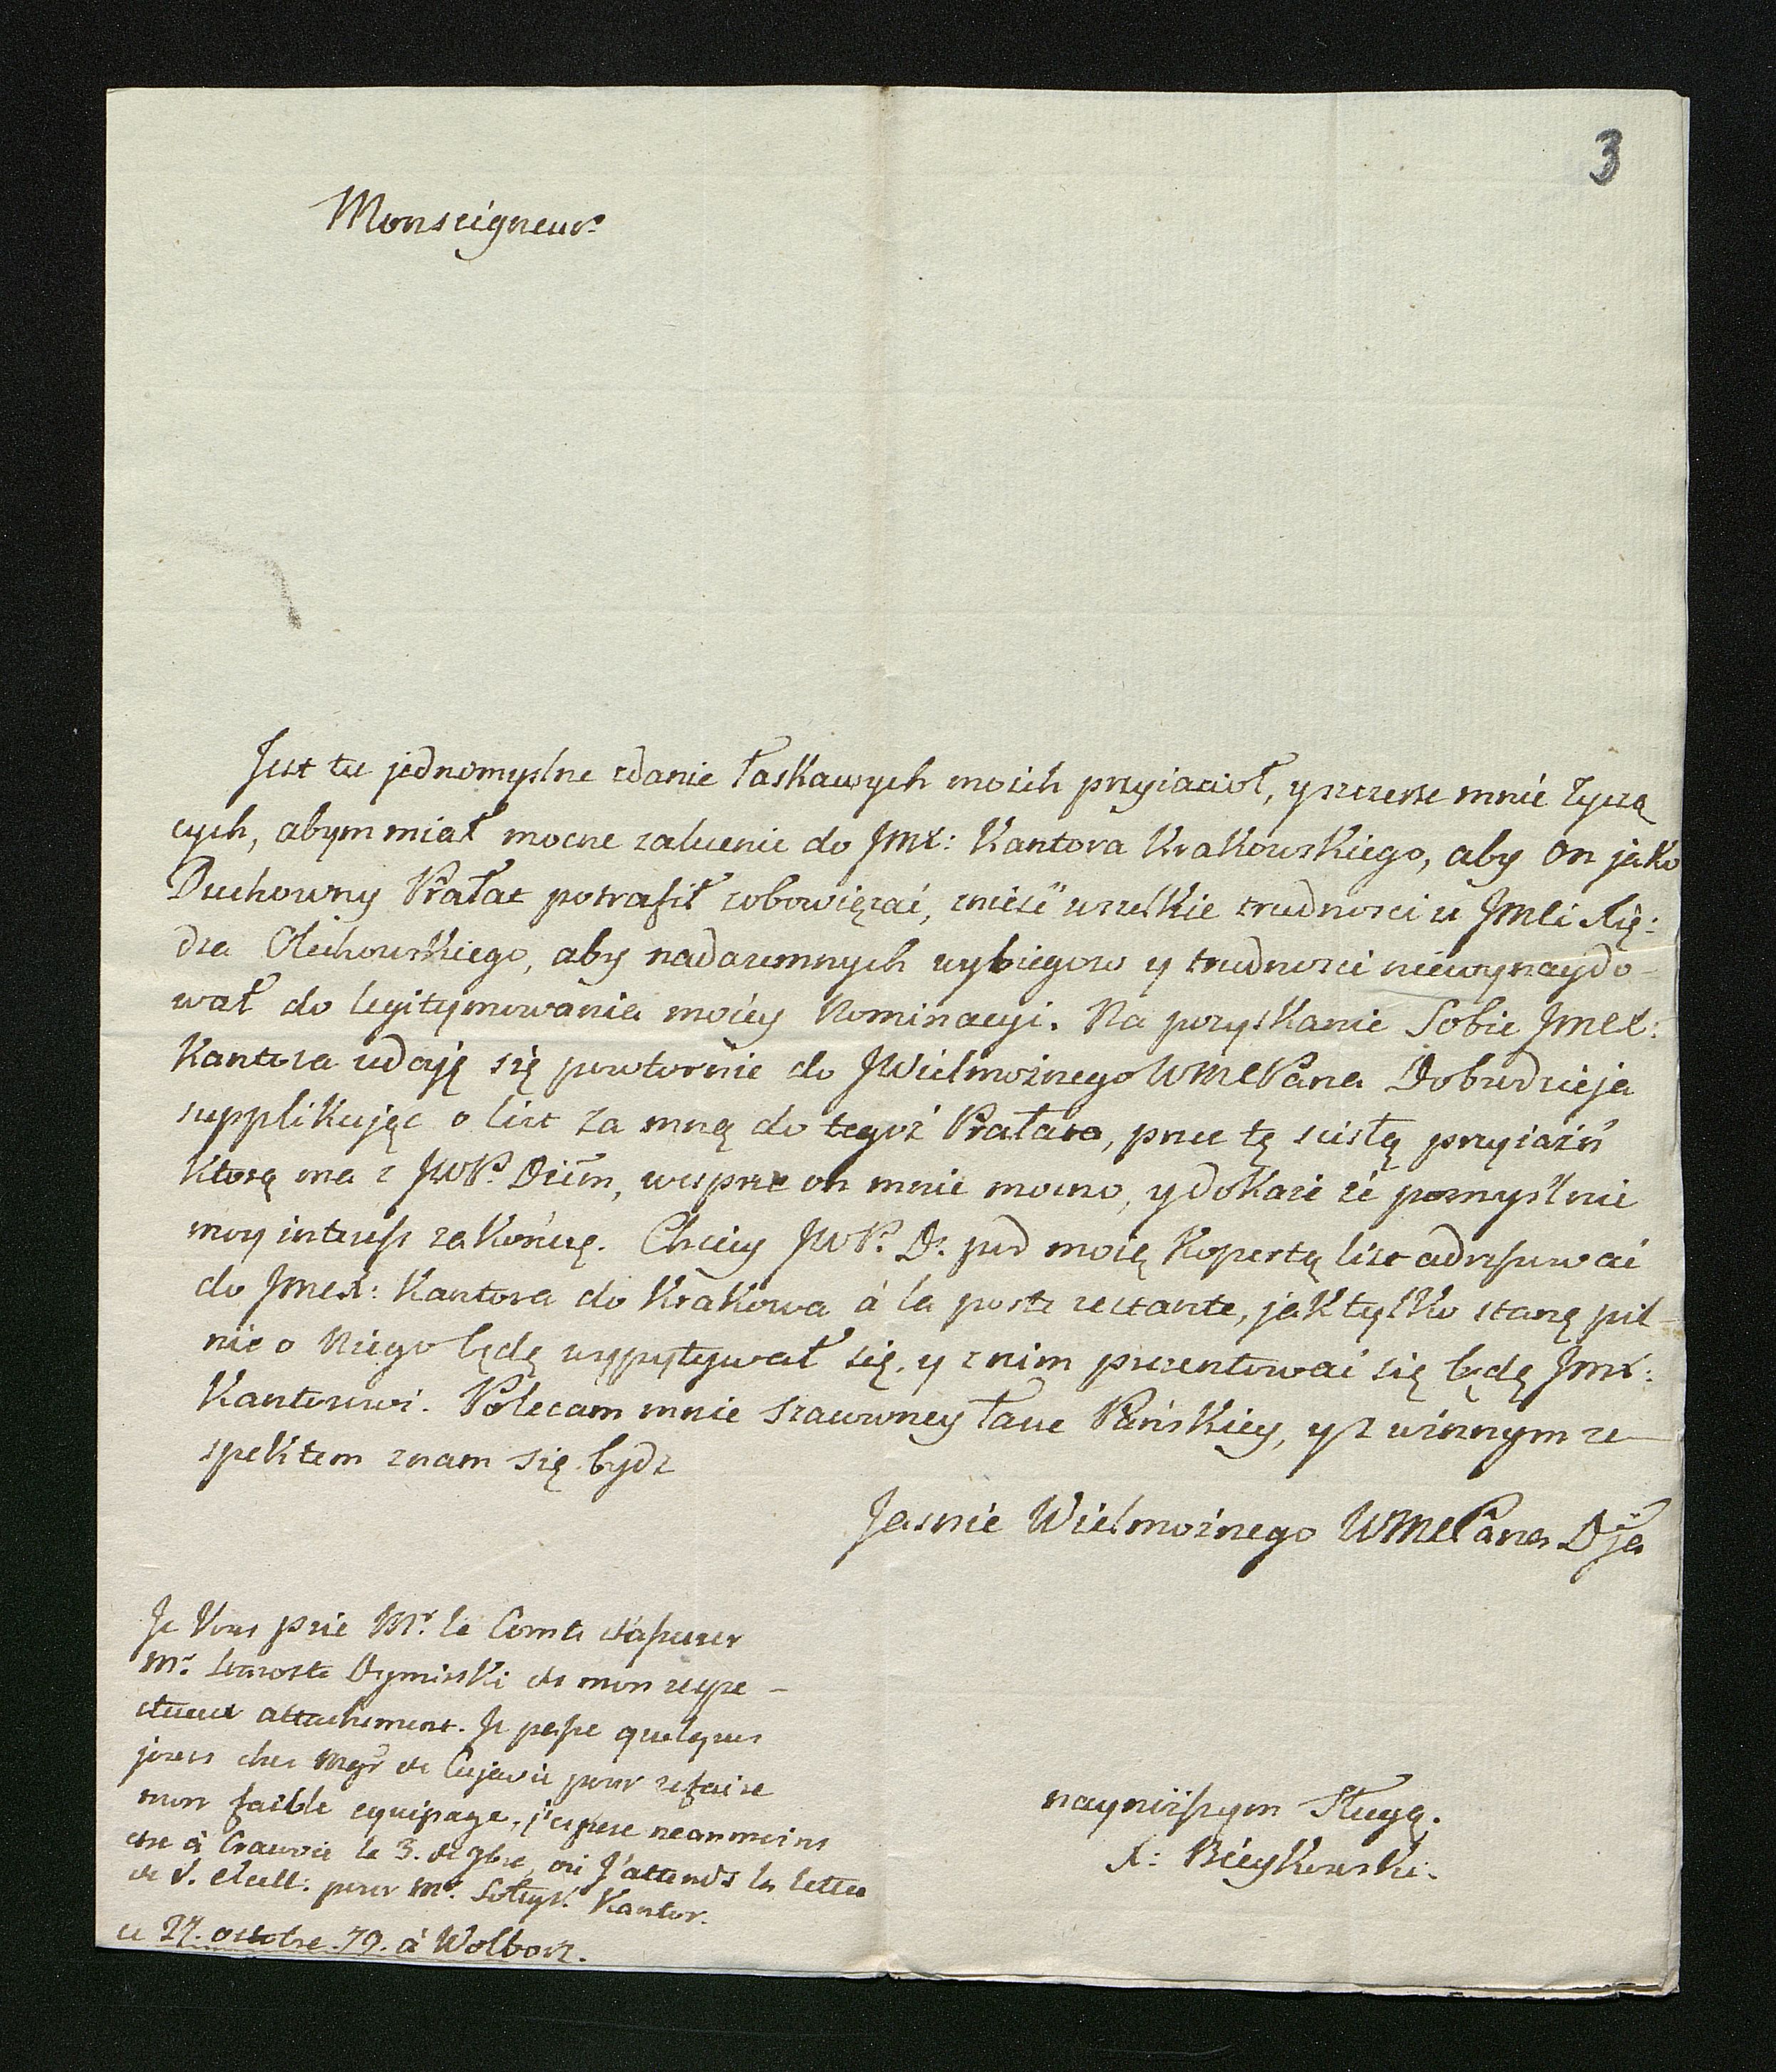 3
Monseigneur
Jest tu jednomyslne zdanie łaskawych moich przyiacioł, y szczerze mnie życzą
cych, abym miał mocne zalecenie do JMX: Kantora Krakowskiego, aby on jako
Duchowny Prałat potrafił zobowięzać, znieść wszelkie trudnosci u JMCi Xię:
dza Olechowskiego, aby nadaremnych wybiegow y trudnosci niewynaydo-
wał do legitymowania moiey Nominacyi. Na pozyskanie Sobie JMCX:
Kantora udaję się powtornie do JWielmożnego WMCPana Dobrodzieja
supplikując o list za mną do tegoż Prałata, przez tę scisłą przyiaźń
ktorą ma z JWP. Dziem, wesprze on mnie mocno, y dokaże że pomyslnie
moy interess zakończę. Chciey JWP. D. pod moię kopertą list adressować
do JMCX: Kantora do Krakowa à la poste restante, jak tylko stanę pil-
nie o Niego będę wypytywał się, y z nim prezentować się będę JMX:
Kantorowi. Polecam mnie szacowney łasce Pańskiey, y z winnym re
spektem znam się bydz
Jasnie Wielmożnego WMCPana Dja
Je Vous prie Mr. le Comte d'assurer
Mr. Starosta Dyminski de mon respe-
ctueux attachement. Je passe quelques
jours chez Mgr de Cujavie pour refaire
mon faible equipage, j'espere neanmoins
etre à Cracovie le 3. de 9bre, où j'attends la lettre
de V. Excell: pour Mr. Soltyk Kantor.
ce 27. octobre. 79. à Wolborz.
nayniższym Sługą.
X: Bieykowski.